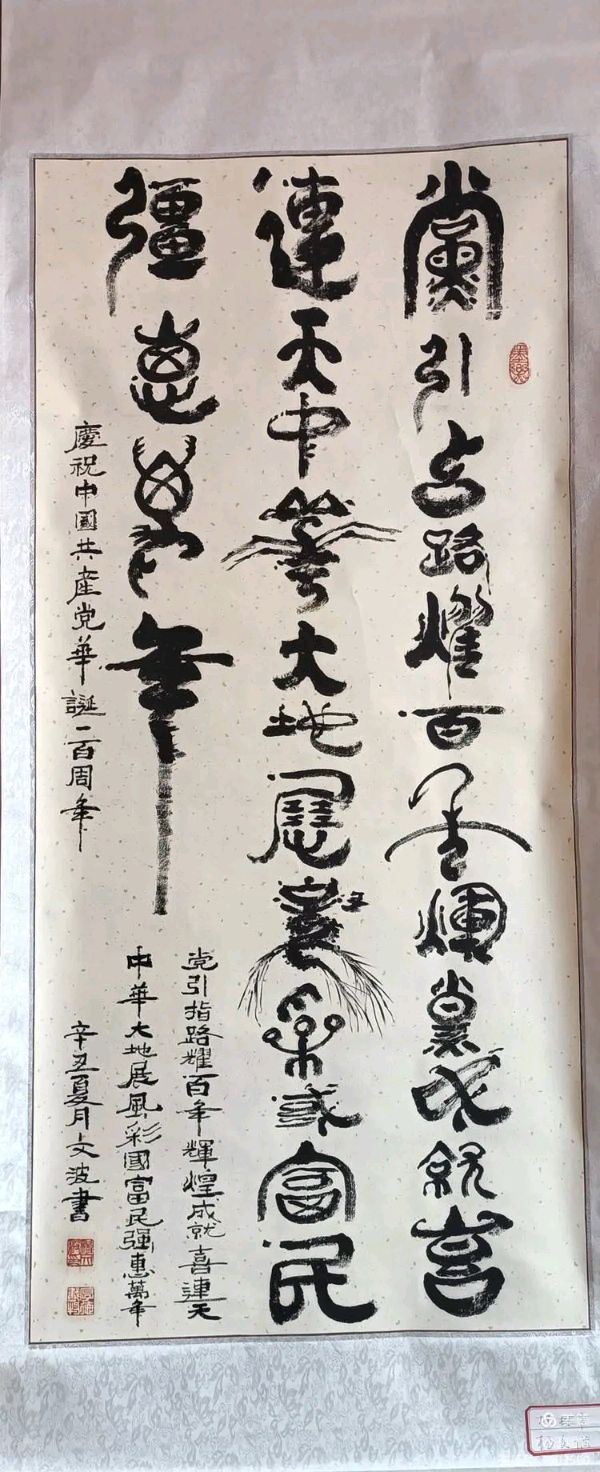 黨引旨路耀百年煇煌成就喜
連天中華大地展風采或富民
彊惠萬年
党引指路耀百年輝煌成就喜連天
中華大地展風彩國富民强惠萬年
慶祝中國共産党華誕一百周年
辛丑夏月文波書